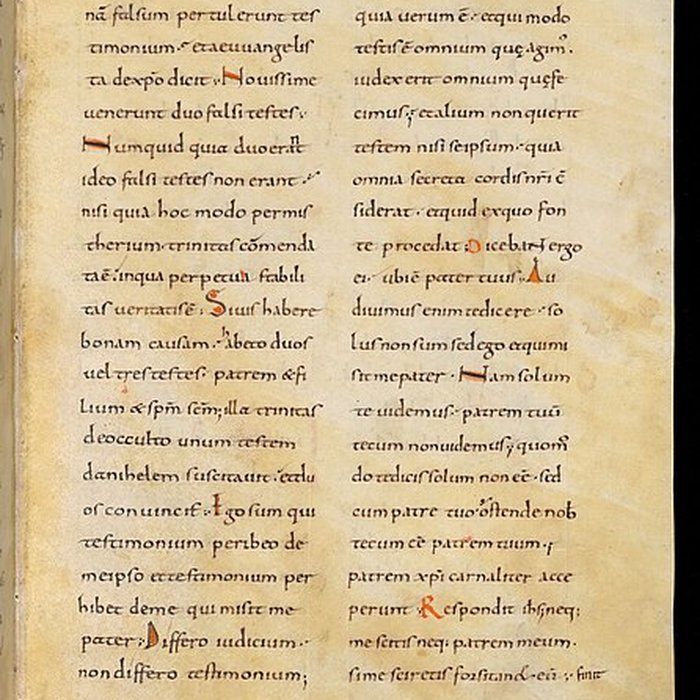 nā falsum pertulerunt tes
timonium· et aeuuangelis
ta de xp̄o dicit; Nouissime
uenerunt duo falsi testes;
Numquid quia duo erant
ideo falsi testes non erant·
nisi quia hoc modo permis
therium· trinitas cōmenda
ta ē· in qua perpetua stabili
tas ueritatis ē; Si uis habere
bonam causam· habeto duos
uel tres testes· patrem & fi
lium & sp̄m sc̄m; illa trinitas
de occulto unum testem
danihelem suscitauit· et du
os conuincit; Ego sum qui
testimonium peribeo de
meipso et testimonium per
hibet de me qui misit me
pater; Differo iudicium·
non differo testimonium;
quia uerum ē· et qui modo
testis ē omnium quę agim̄·
iudex erit omnium quę fe
cimus; et alium non querit
testem nisi seipsum· quia
omnia secreta cordis nr̄i c̄
siderat· et quid ex quo fon
te procedat; Dicebant ergo
ei· ubi ē pater tuus; Au
diuimus enim te dicere· so
lus non sum sed ego et qui mi
sit me pater· Nam solum
te uidemus· patrem tuū
tecum non uidemus; quom̄
do te dicis solum non eē· sed
cum patre tuo· ostende nob
tecum eē patrem tuum;
patrem xp̄i carnaliter acce
perunt· Respondit ih̄s; neq;
me scitis neq; patrem meum·
si me sciretis forsitan & eū; finit